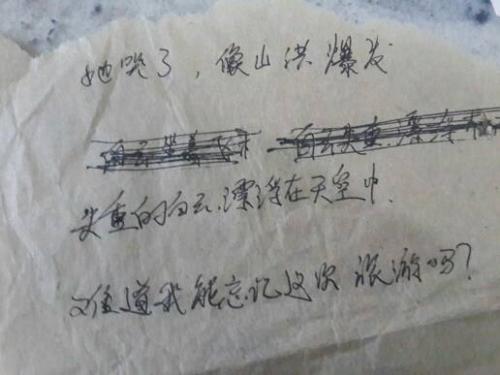 她哭了，像山洪爆发
失重的白云，漂浮在天空中.
难道我能忘记这次旅游吗？